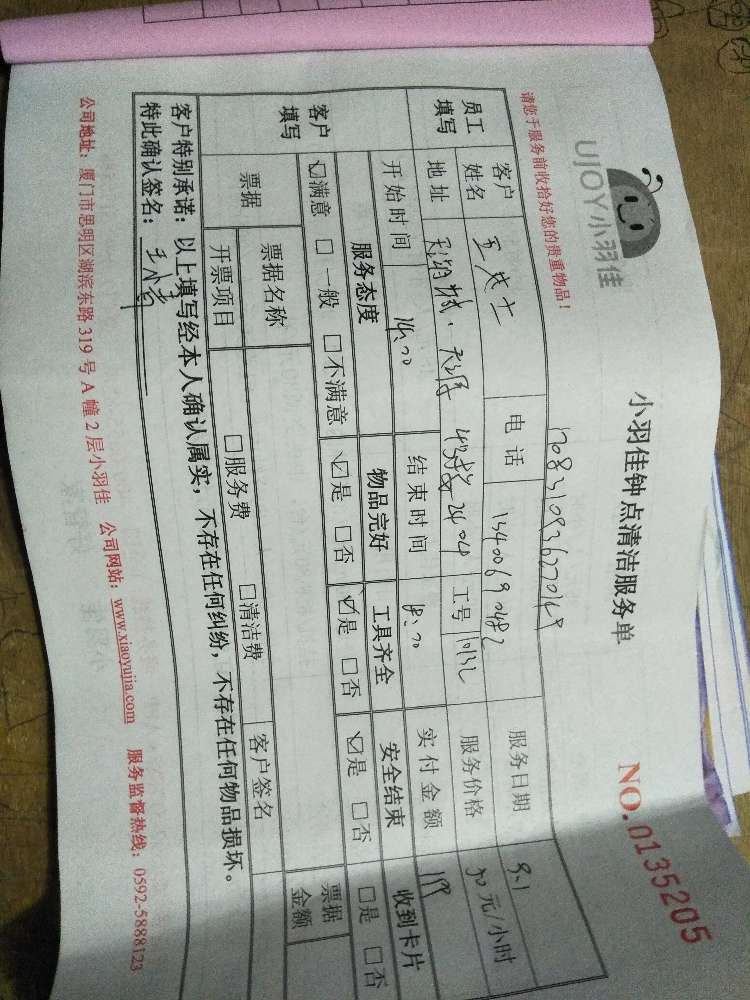 UJOY小羽佳
小羽佳钟点清洁服务单
NO.0135205
请您于服务前收拾好您的贵重物品!
员工填写 客户姓名 王女士 电话 13400690482 服务日期 9.1
地址 工号 10132 服务价格 50元/小时
开始时间 14:00 结束时间 18:00 实付金额 199
客户填写 服务态度 物品完好 工具齐全 安全结束 收到卡片
☑满意 □一般 □不满意 ☑是 □否 ☑是 □否 ☑是 □否 □是 □否
票据 票据名称 客户签名 票据金额
开票项目 □服务费 □清洁费
客户特别承诺:以上填写经本人确认属实,不存在任何纠纷,不存在任何物品损坏。
特此确认签名:
公司地址:厦门市思明区湖滨东路319号A幢2层小羽佳 公司网站:www.xiaoyujia.com 服务监督热线:0592-5888123